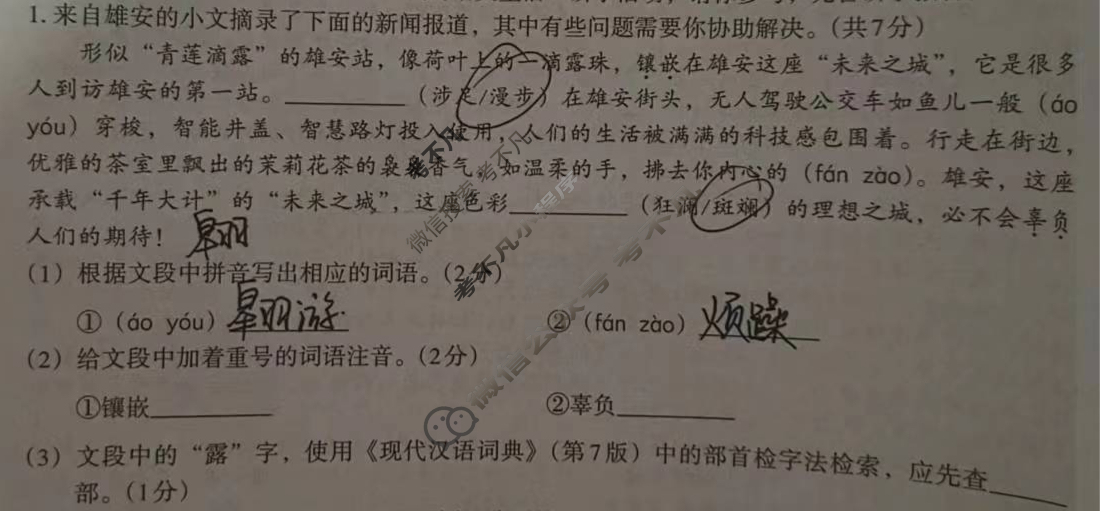 1.来自雄安的小文摘录了下面的新闻报道，其中有些问题需要你协助解决。(共7分)
形似“青莲滴露”的雄安站，像荷叶上的一滴露珠，镶嵌在雄安这座“未来之城”，它是很多
人到访雄安的第一站。________（涉足/漫步）在雄安街头，无人驾驶公交车如鱼儿一般（áo
yóu）穿梭，智能井盖、智慧路灯投入使用，人们的生活被满满的科技感包围着。行走在街边，
优雅的茶室里飘出的茉莉花茶的袅袅香气，如温柔的手，拂去你内心的（fán zào）。雄安，这座
承载“千年大计”的“未来之城”，这座色彩________（狂澜/斑斓）的理想之城，必不会辜负
人们的期待！
(1) 根据文段中拼音写出相应的词语。(2分)
①（áo yóu）翱游 ②（fán zào）烦躁
(2) 给文段中加着重号的词语注音。(2分)
①镶嵌________ ②辜负________
(3) 文段中的“露”字，使用《现代汉语词典》(第7版)中的部首检字法检索，应先查______
部。(1分)
微信搜索 考不凡小程序
微信公众号 考不凡